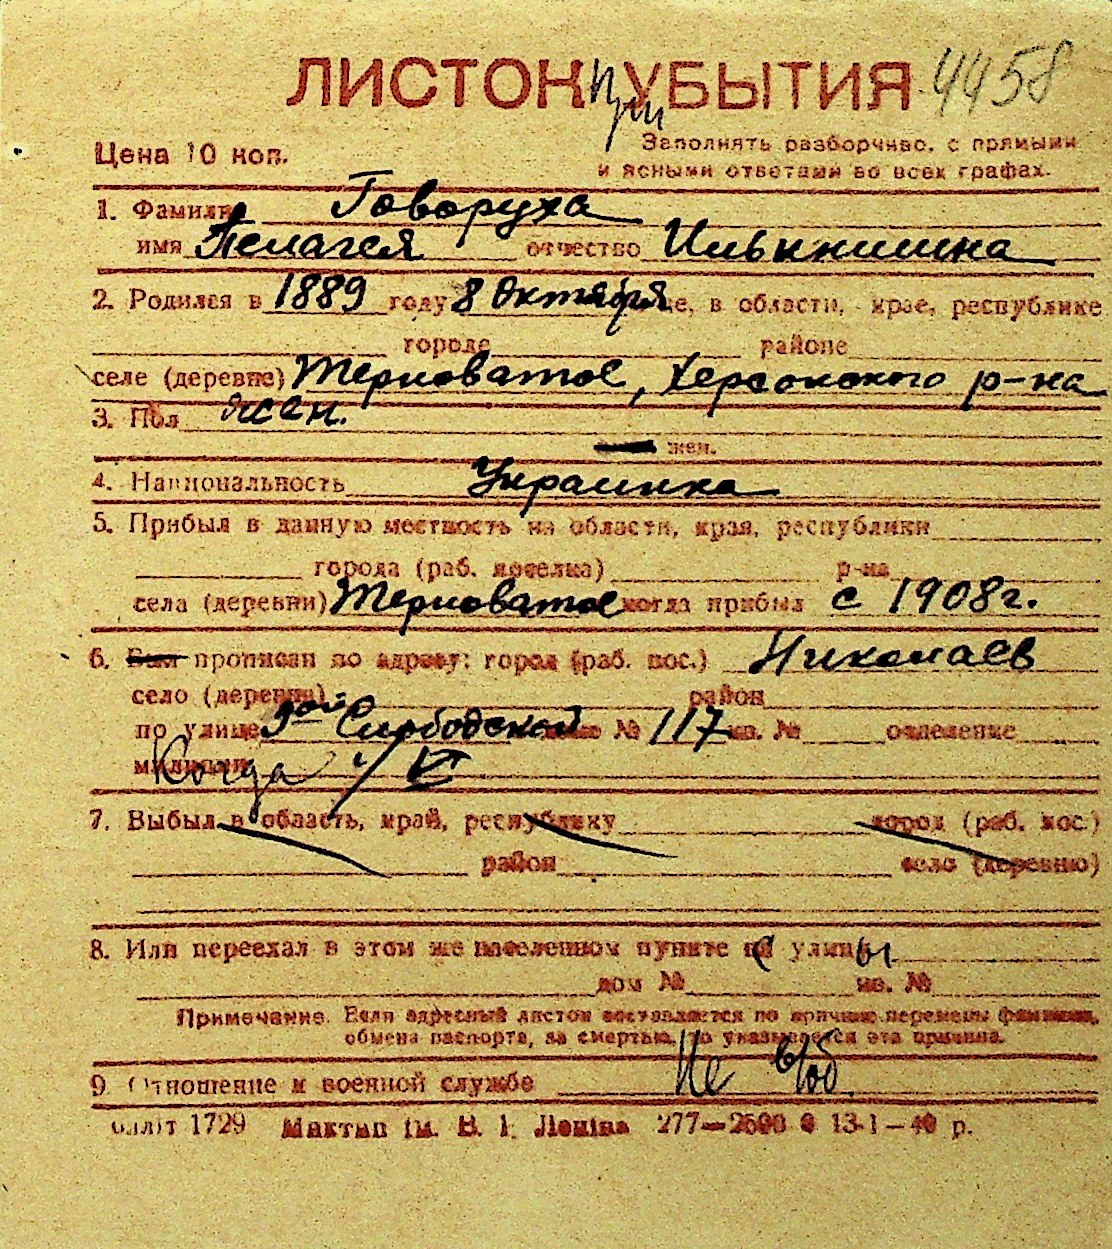 ЛИСТОК при УБЫТИЯ 4458
Цена 10 коп.
Заполнять разборчиво, с прямыми
и ясными ответами во всех графах.
1. Фамилия Говоруха
имя Пелагея отчество Ильинишна
2. Родился в 1889 году 8 Октября це, в области, крае, республике
городе районе
селе (деревне) Терноватое, Херсонского р-на
3. Пол жен.
жен.
4. Национальность Украинка
5. Прибыл в данную местность из области, края, республики
города (раб. поселка) р-на
села (деревни) Терноватое когда прибыл с 1908 г.
6. Был прописан по адресу: город (раб. пос.) Николаев
село (деревня) район
по улице Слободской № 117 кв. № отделение
милиции Когда VI
7. Выбыл в область, край, республику город (раб. пос.)
район село (деревню)
8. Или переехал в этом же населенном пункте с улицы
дом № кв. №
Примечание. Если адресный листок составляется по причине перемены фамилии,
обмена паспорта, за смертью, то указывается эта причина.
9 Отношение к военной службе Не в/об
блліт 1729 Миктип ім. В. І. Леніна 277—2500 13-1—40 р.